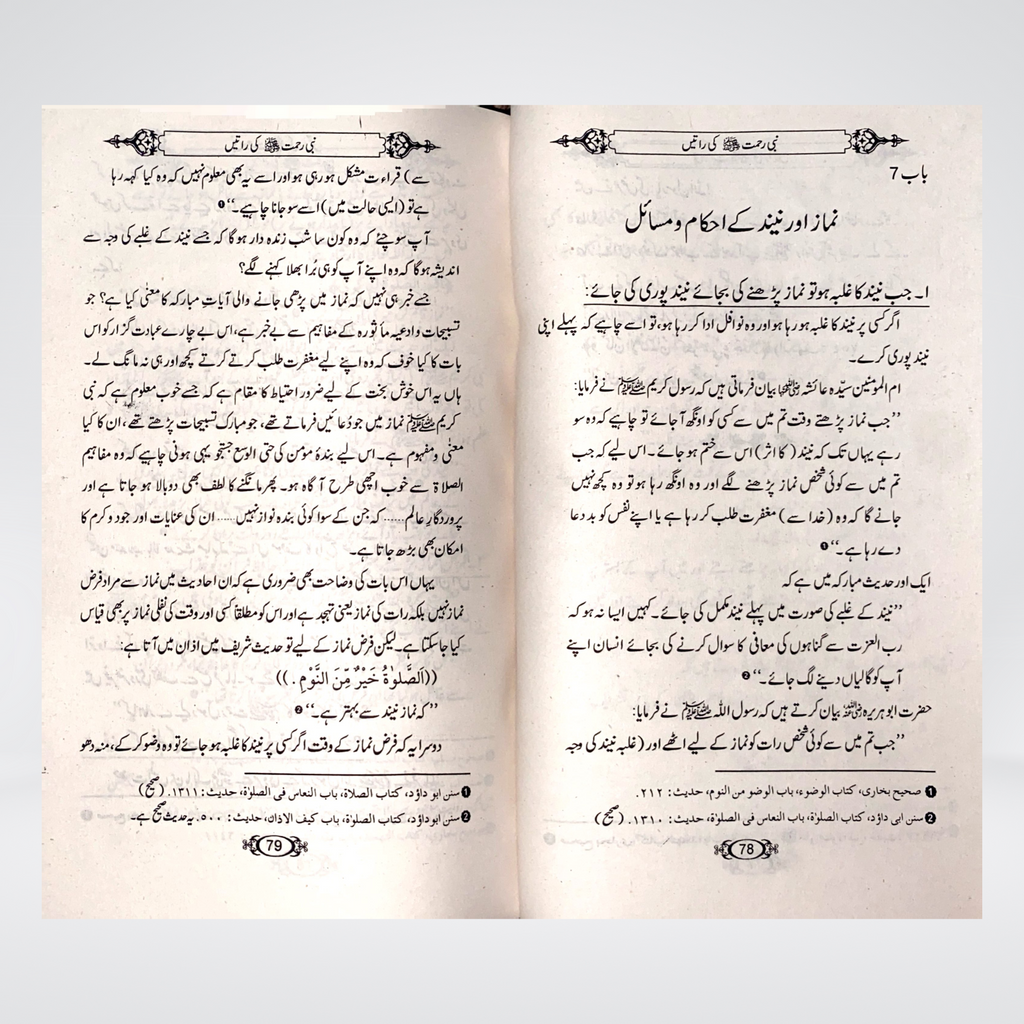 نبی رحمت ﷺ کی راتیں
باب 7
نماز اور نیند کے احکام و مسائل
۱۔ جب نیند کا غلبہ ہو تو نماز پڑھنے کی بجائے نیند پوری کی جائے:
اگر کسی پر نیند کا غلبہ ہو رہا ہو اور وہ نوافل ادا کر رہا ہو، تو اسے چاہیے کہ پہلے اپنی
نیند پوری کرے۔
ام المومنین سیّدہ عائشہ رضی اللہ عنہا بیان فرماتی ہیں کہ رسول کریم ﷺ نے فرمایا:
’’جب نماز پڑھتے وقت تم میں سے کسی کو اونگھ آ جائے تو چاہیے کہ وہ سو
رہے یہاں تک کہ نیند (کا اثر) اس سے ختم ہو جائے۔ اس لیے کہ جب
تم میں سے کوئی شخص نماز پڑھنے لگے اور وہ اونگھ رہا ہو تو وہ کچھ نہیں
جانے گا کہ وہ (خدا سے) مغفرت طلب کر رہا ہے یا اپنے نفس کو بد دعا
دے رہا ہے۔‘‘ ❶
ایک اور حدیث مبارکہ میں ہے کہ
’’نیند کے غلبے کی صورت میں پہلے نیند مکمل کی جائے۔ کہیں ایسا نہ ہو کہ
رب العزت سے گناہوں کی معافی کا سوال کرنے کی بجائے انسان اپنے
آپ کو گالیاں دینے لگ جائے۔‘‘ ❷
حضرت ابو ہریرہ رضی اللہ عنہ بیان کرتے ہیں کہ رسول اللہ ﷺ نے فرمایا:
’’جب تم میں سے کوئی شخص رات کو نماز کے لیے اٹھے اور (غلبہ نیند کی وجہ
❶ صحیح بخاری، کتاب الوضوء، باب الوضو من النوم، حدیث: ۲۱۲.
❷ سنن ابی داؤد، کتاب الصلوٰة، باب النعاس فی الصلوٰة، حدیث: ۱۳۱۰. (صحیح)
78
نبی رحمت ﷺ کی راتیں
سے) قراءت مشکل ہو رہی ہو اور اسے یہ بھی معلوم نہیں کہ وہ کیا کہہ رہا
ہے تو (ایسی حالت میں) اسے سو جانا چاہیے۔‘‘ ❶
آپ سوچئے کہ وہ کون سا شب زندہ دار ہوگا کہ جسے نیند کے غلبے کی وجہ سے
اندیشہ ہوگا کہ وہ اپنے آپ کو ہی بُرا بھلا کہنے لگے؟
جسے خبر ہی نہیں کہ نماز میں پڑھی جانے والی آیاتِ مبارکہ کا معنٰی کیا ہے؟ جو
تسبیحات و ادعیہ ماثورہ کے مفاہیم سے بے خبر ہے، اس بے چارے عبادت گزار کو اس
بات کا کیا خوف کہ وہ اپنے لیے مغفرت طلب کرتے کرتے کچھ اور ہی نہ مانگ لے۔
ہاں یہ اس خوش بخت کے لیے ضرور احتیاط کا مقام ہے کہ جسے خوب معلوم ہے کہ نبی
کریم ﷺ نماز میں جو دُعائیں فرماتے تھے، جو مبارک تسبیحات پڑھتے تھے، ان کا کیا
معنٰی و مفہوم ہے۔ اس لیے بندۂ مؤمن کی حتی الوسع جستجو یہی ہونی چاہیے کہ وہ مفاہیم
الصلاۃ سے خوب اچھی طرح آگاہ ہو۔ پھر مانگنے کا لطف بھی دوبالا ہو جاتا ہے اور
پروردگارِ عالم...... کہ جن کے سوا کوئی بندہ نواز نہیں...... ان کی عنایات اور جود و کرم کا
امکان بھی بڑھ جاتا ہے۔
یہاں اس بات کی وضاحت بھی ضروری ہے کہ ان احادیث میں نماز سے مراد فرض
نماز نہیں بلکہ رات کی نماز یعنی تہجد ہے اور اس کو مطلقاً کسی اور وقت کی نفلی نماز پر بھی قیاس
کیا جا سکتا ہے۔ لیکن فرض نماز کے لیے تو حدیث شریف میں اذان میں آتا ہے:
((اَلصَّلوٰةُ خَیْرٌ مِّنَ النَّوْمِ.))
’’کہ نماز نیند سے بہتر ہے۔‘‘ ❷
دوسرا یہ کہ فرض نماز کے وقت اگر کسی پر نیند کا غلبہ ہو جائے تو وہ وضو کر کے، منہ دھو
❶ سنن ابو داؤد، کتاب الصلاة، باب النعاس فی الصلوٰة، حدیث: ۱۳۱۱. (صحیح)
❷ سنن ابو داؤد، کتاب الصلوٰة، باب کیف الاذان، حدیث: ۵۰۰. یہ حدیث صحیح ہے۔
79